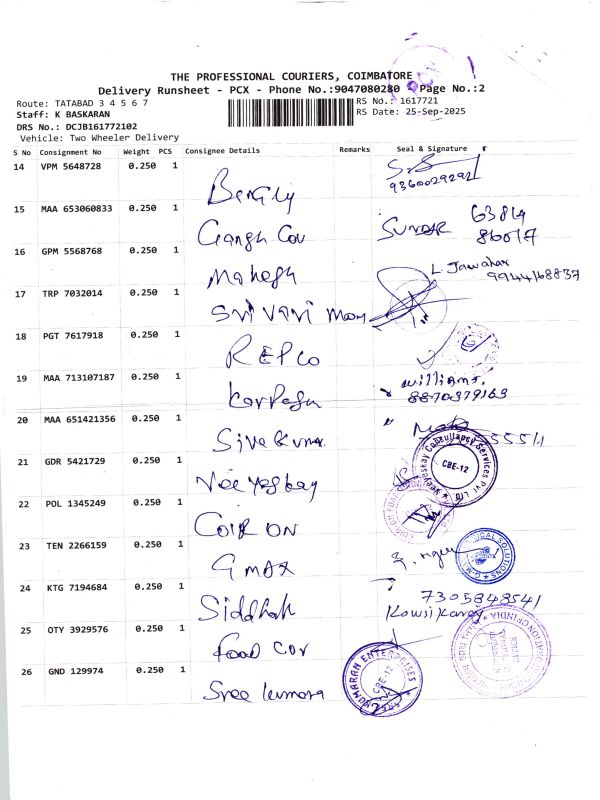 THE PROFESSIONAL COURIERS, COIMBATORE
Delivery Runsheet - PCX - Phone No.:9047080280 Page No.:2
Route: TATABAD 3 4 5 6 7
RS No.: 1617721
Staff: K BASKARAN
RS Date: 25-Sep-2025
DRS No.: DCJB161772102
Vehicle: Two Wheeler Delivery
S No Consignment No Weight PCS Consignee Details Remarks Seal & Signature
14 VPM 5648728 0.250 1
9360029292
15 MAA 653060833 0.250 1 Gangh Cov SUNDAR 63814
86017
16 GPM 5568768 0.250 1 Mahesh L. Jawahar
9944168837
17 TRP 7032014 0.250 1 Sri Vari Mam
18 PGT 7617918 0.250 1 REPCO
19 MAA 713107187 0.250 1 Williams.
8870379163
20 MAA 651421356 0.250 1 Siva Kumar 55511
21 GDR 5421729 0.250 1 Vee yes kay
Veeyeskay Consultancy Services Pvt Ltd
CBE-12
22 POL 1345249 0.250 1 COIR ON
23 TEN 2266159 1 GMAX
24 KTG 7194684 0.250 1 Siddhah
7305848541
25 OTY 3929576 0.250 1 Food Cor
FOOD CORPORATION OF INDIA
26 GND 129974 0.250 1 Sree kumara
KUMARAN ENTERPRISES
CBE-12